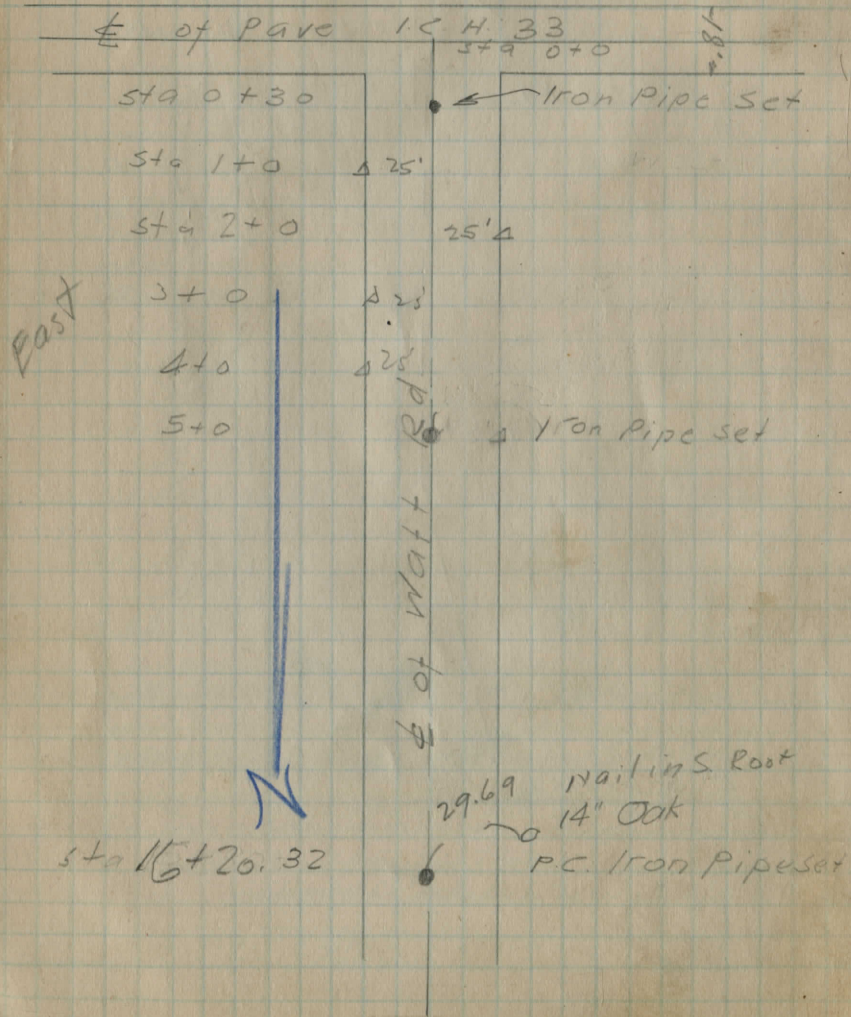 ℄ of Pave I.C.H. 33
sta 0+0
18'
sta 0+30 Iron Pipe Set
sta 1+0 25'
sta 2+0 25'
3+0 25'
4+0 25'
5+0 Iron Pipe set
East
℄ of Watt Rd
N
29.69 Nail in S. Root
14" Oak
sta 16+20.32 P.C. Iron Pipe set